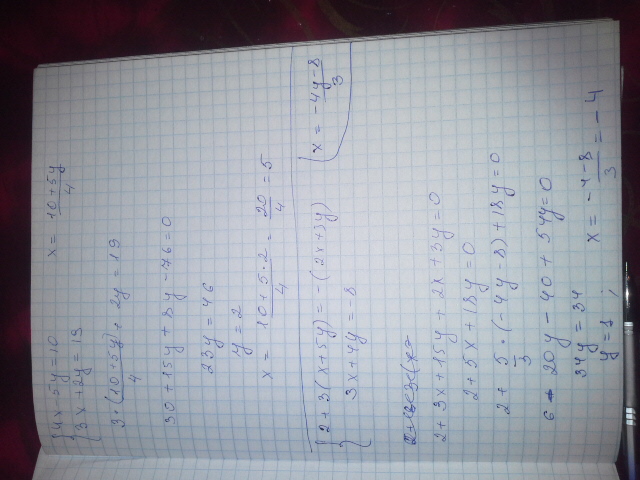 {4x-5y=10
{3x+2y=19
x = 10+5y/4
3·(10+5y)/4 + 2y = 19
30+15y+8y-76=0
23y=46
y=2
x = 10+5·2/4 = 20/4 = 5
{2+3(x+5y)=-(2x+3y)
{3x+4y=-8
{x = -4y-8/3
2+3x+15y+2x+3y=0
2+5x+18y=0
2+ 5/3·(-4y-8)+18y=0
6-20y-40+54y=0
34y=34
y=1;
x = -4-8/3 = -4